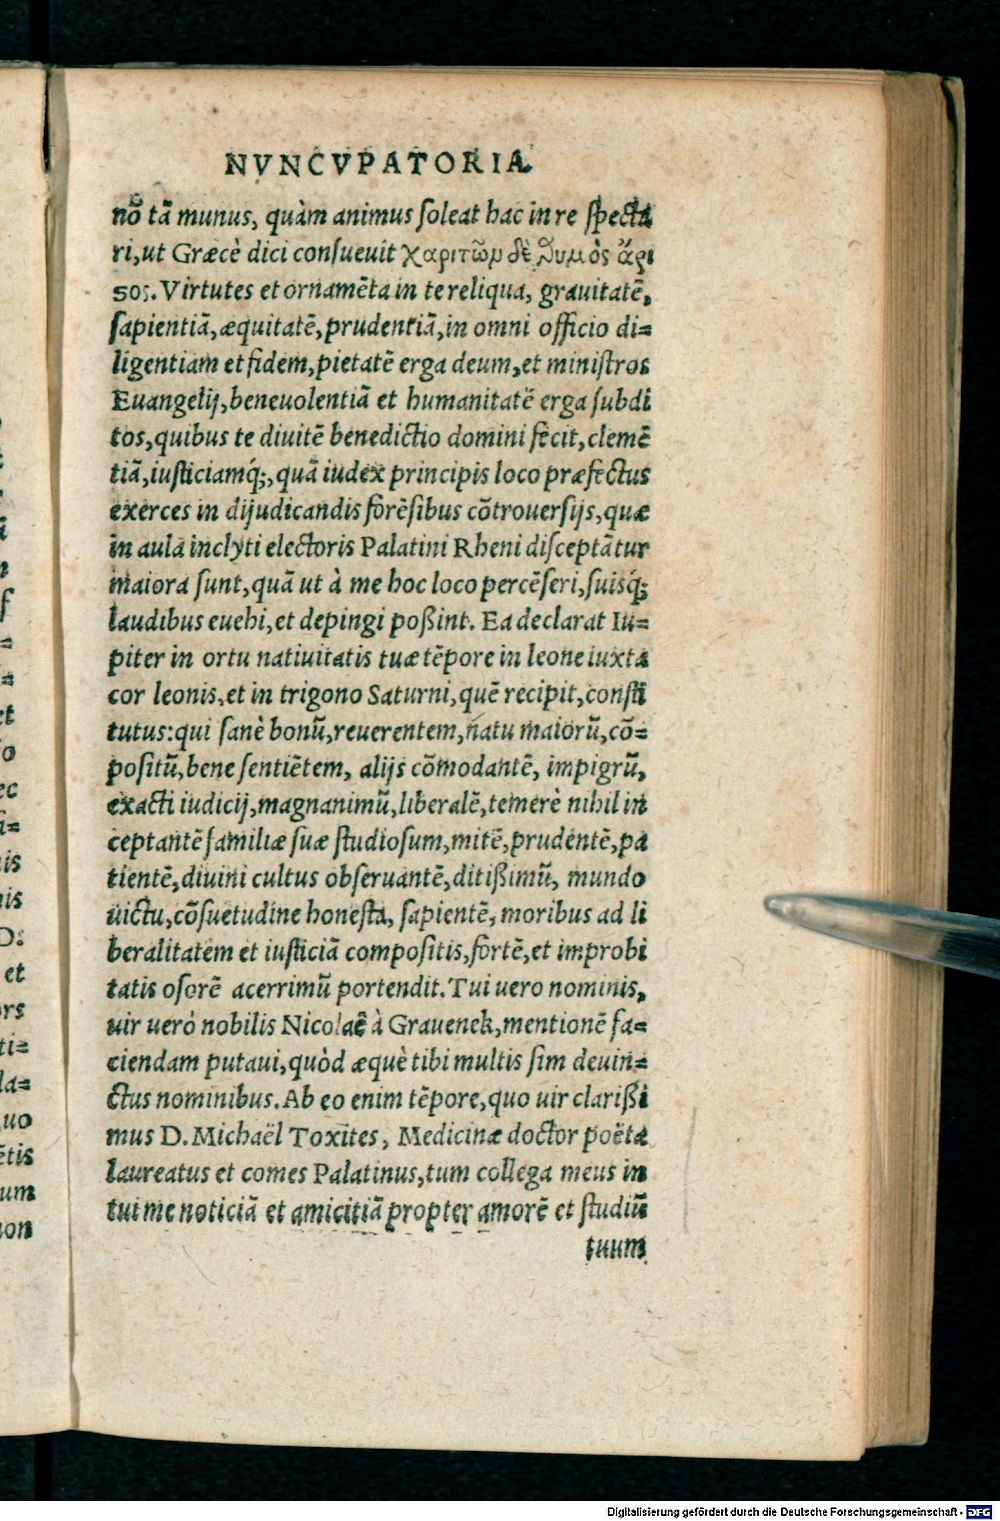 NVNCVPATORIA
nõ tã munus, quàm animus ſoleat hac in re ſpecta
ri, ut Græcè dici conſueuit χαριτῶν δὲ θυμὸς ἄρι
sos. Virtutes et ornamẽta in te reliqua, grauitatẽ,
ſapientiã, æquitatẽ, prudentiã, in omni officio di=
ligentiam et fidem, pietatẽ erga deum, et miniſtros
Euangelij, beneuolentiã et humanitatẽ erga ſubdi
tos, quibus te diuitẽ benedictio domini fecit, clemẽ
tiã, iuſticiamq́;, quã iudex principis loco præfectus
exerces in dijudicandis forẽſibus cõtrouerſijs, quæ
in aula inclyti electoris Palatini Rheni diſceptãtur
maiora ſunt, quã ut à me hoc loco percẽſeri, ſuisq́;
laudibus euehi, et depingi poßint. Ea declarat Iu=
piter in ortu natiuitatis tuæ tẽpore in leone iuxta
cor leonis, et in trigono Saturni, quẽ recipit, conſti
tutus: qui ſanè bonũ, reuerentem, natu maiorũ, cõ=
poſitũ, bene ſentiẽtem, alijs cõmodantẽ, impigrũ,
exacti iudicij, magnanimũ, liberalẽ, temerè nihil in
ceptantẽ familiæ ſuæ ſtudioſum, mitẽ, prudentẽ, pa
tientẽ, diuini cultus obſeruantẽ, ditißimũ, mundo
uictu, cõſuetudine honeſta, ſapientẽ, moribus ad li
beralitatem et iuſticiã compoſitis, fortẽ, et improbi
tatis oſorẽ acerrimũ portendit. Tui uero nominis,
uir uerò nobilis Nicolaẽ à Grauenek, mentionẽ fa=
ciendam putaui, quòd æquè tibi multis ſim deuin=
ctus nominibus. Ab eo enim tẽpore, quo uir clarißi
mus D. Michaël Toxites, Medicinæ doctor poëta
laureatus et comes Palatinus, tum collega meus in
tui me noticiã et amicitiã propter amorẽ et ſtudiũ
tuum
Digitalisierung gefördert durch die Deutsche Forschungsgemeinschaft - DFG